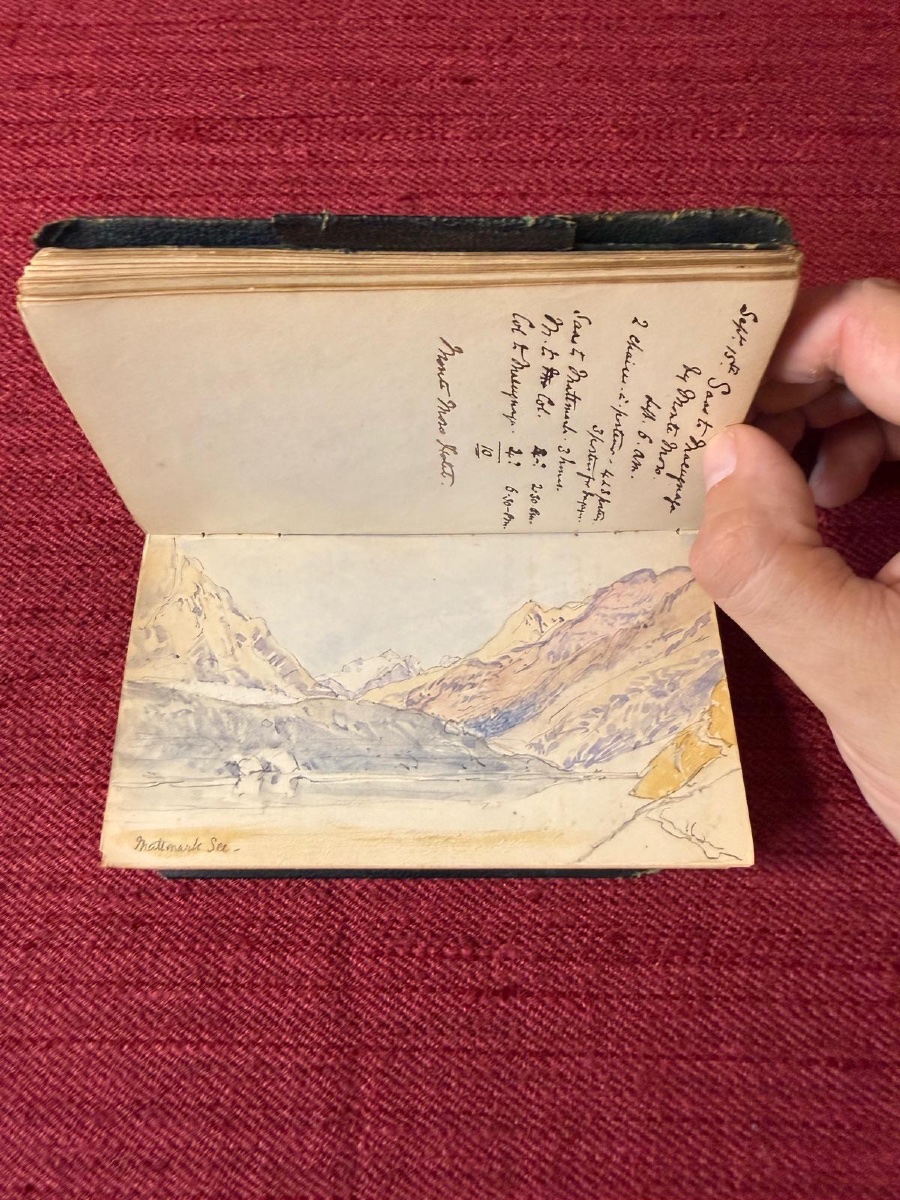 Sept. 15th Saas to Macugnaga
by Monte Moro.
dep. 6. a.m.
2 chaises. à porteurs. 4 & 3 porters.
3 porters for
Saas to Mattmark. 3 hours.
M. to Col. 2.30
Col to Macugnaga. 2.? 6.30 p.m.
10
Monte Moro Hotel.
Mattmark See -